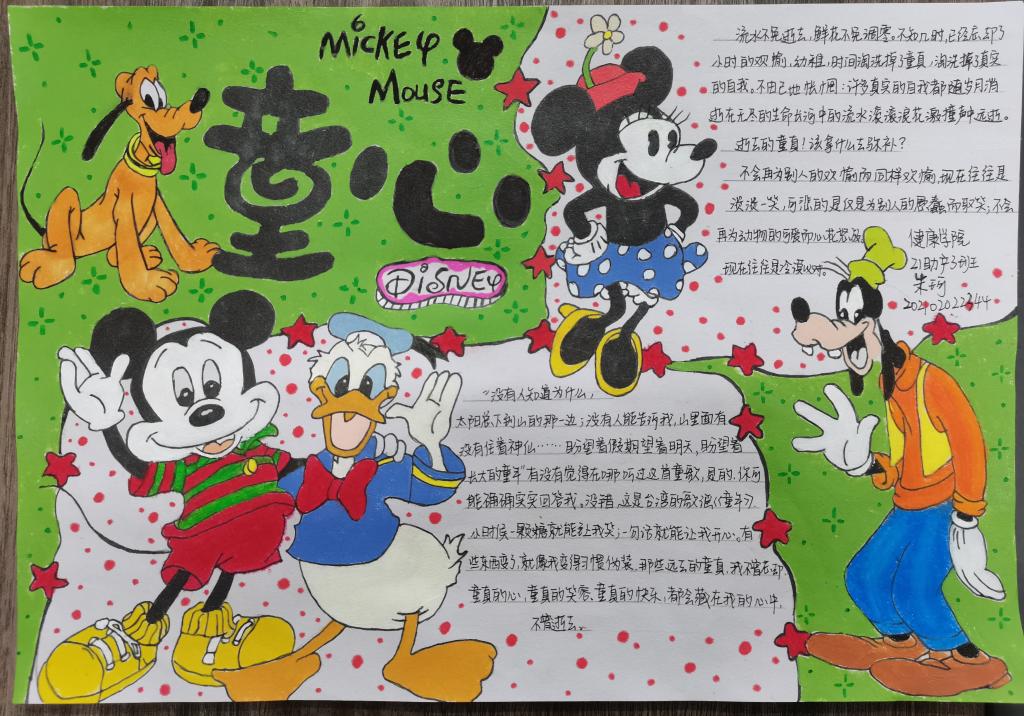 MICKEY
MOUSE
童心
DISNEY
流水不免逝去,鲜花不免凋零。不知几时,已经忘却了
小时的欢愉、幼稚,时间淘洗掉了童真,淘洗掉了真实
的自我。不由己地怅惘:许多真实的自我都随岁月消
逝在无尽的生命长河中的流水滚滚浪花激撞声中远逝。
逝去的童真!该拿什么去弥补?
不会再为别人的欢愉而同样欢愉,现在往往是
淡淡一笑,可悲的是仅是为别人的愚蠢而取笑;不会
再为动物的可爱而心花怒放,
现在往往是冷漠以对。
健康学院
21助产3班
朱珂
"没有人知道为什么,
太阳总下到山的那一边;没有人能告诉我,山里面有
没有住着神仙……盼望着假期望着明天,盼望着
长大的童年"有没有觉得在哪听过这首童歌,是的,你可
能确确实实回答我。没错,这是台湾的歌很《童年》,
小时候一颗糖就能让我笑;一句话就能让我开心。有
些东西变了,就像我变得习惯伪装,那些远去的童真,我不曾忘却
童真的心、童真的笑容、童真的快乐,都会藏在我的心中,
不曾逝去。